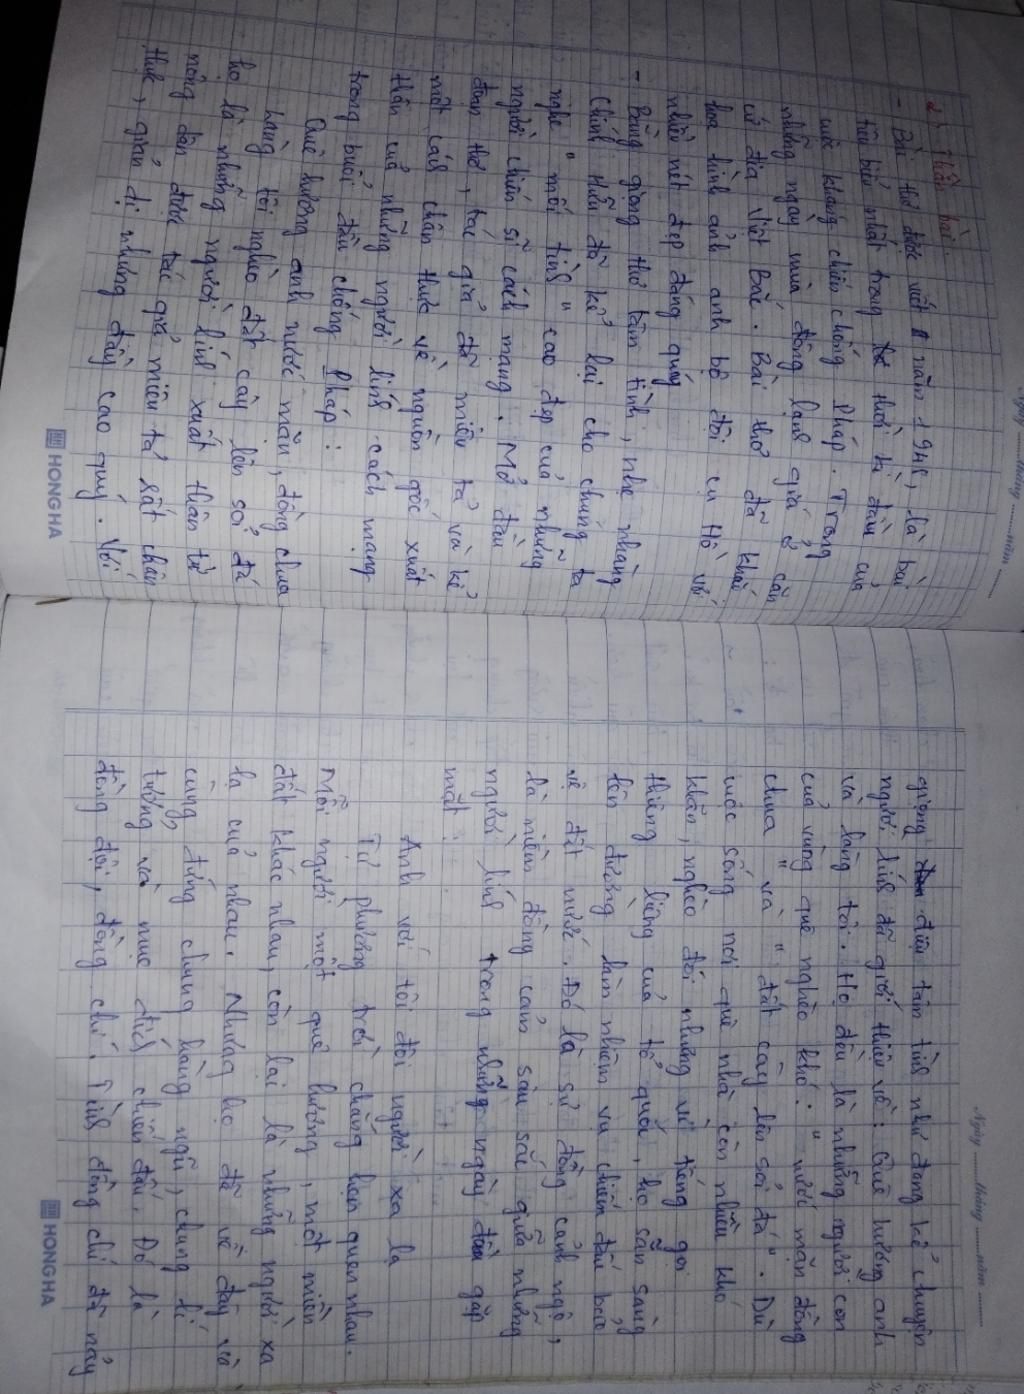 Ngày ........ tháng ........ năm ........
2) Thân bài.
- Bài thơ được viết năm 1948, là bài
tiêu biểu nhất trong thời kì đầu của
cuộc kháng chiến chống Pháp. Trong
những ngày mùa đông lạnh giá ở căn
cứ địa Việt Bắc. Bài thơ đã khắc
họa hình ảnh anh bộ đội cụ Hồ với
nhiều nét đẹp đáng quý
- Bằng giọng thơ tâm tình, nhẹ nhàng
Chính Hữu đã kể lại cho chúng ta
nghe " mối tình " cao đẹp của những
người chiến sĩ cách mạng. Mở đầu
đoạn thơ, tác giả đã miêu tả và kể
một cách chân thực về nguồn gốc xuất
thân của những người lính cách mạng
trong buổi đầu chống Pháp :
Quê hương anh nước mặn, đồng chua
Làng tôi nghèo đất cày lên sỏi đá
họ là những người lính xuất thân từ
nông dân được tác giả miêu tả rất chân
thực, giản dị nhưng đầy cao quý. Với
HONG HA
Ngày ........ tháng ........ năm ........
giọng điệu tâm tình như đang kể chuyện
người lính đã giới thiệu về : Quê hương anh
và làng tôi. Họ đều là những người con
của vùng quê nghèo khó : " nước mặn đồng
chua " và " đất cày lên sỏi đá ". Dù
cuộc sống nơi quê nhà còn nhiều khó
khăn, nghèo đói nhưng vì tiếng gọi
thiêng liêng của tổ quốc, họ sẵn sàng
lên đường làm nhiệm vụ chiến đấu bảo
vệ đất nước. Đó là sự đồng cảnh ngộ,
là niềm đồng cảm sâu sắc giữa những
người lính trong những ngày đầu gặp
mặt :
Anh với tôi đôi người xa lạ
Tự phương trời chẳng hẹn quen nhau.
Mỗi người một quê hương, một miền
đất khác nhau, còn lại là những người xa
lạ của nhau. Nhưng họ đã về đây và
cùng đứng chung hàng ngũ, chung lí
tưởng và mục đích chiến đấu. Đó là
đồng đội, đồng chí. Tình đồng chí đã nảy
HONG HA